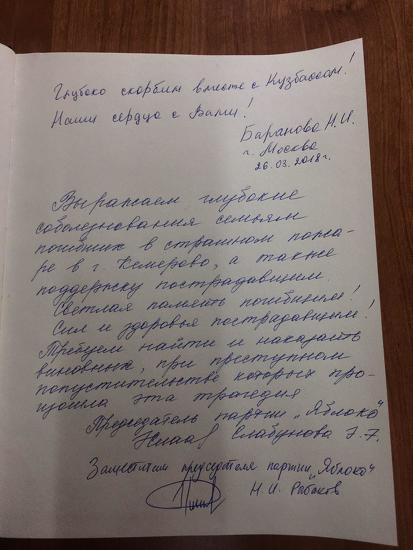 Глубоко скорбим вместе с Кузбассом!
Наши сердца с Вами!
Баранова Н.И.
г. Москва
26.03.2018г.
Выражаем глубокие
соболезнования семьям
погибших в страшном пожа-
ре в г. Кемерово, а также
поддержку пострадавшим.
Светлая память погибшим!
Сил и здоровья пострадавшим!
Требуем найти и наказать
виновных, при преступном
попустительстве которых про-
изошла эта трагедия
Председатель партии „Яблоко"
Слабунова Э.Э.
Заместитель председателя партии „Яблоко"
Н.И. Рыбаков